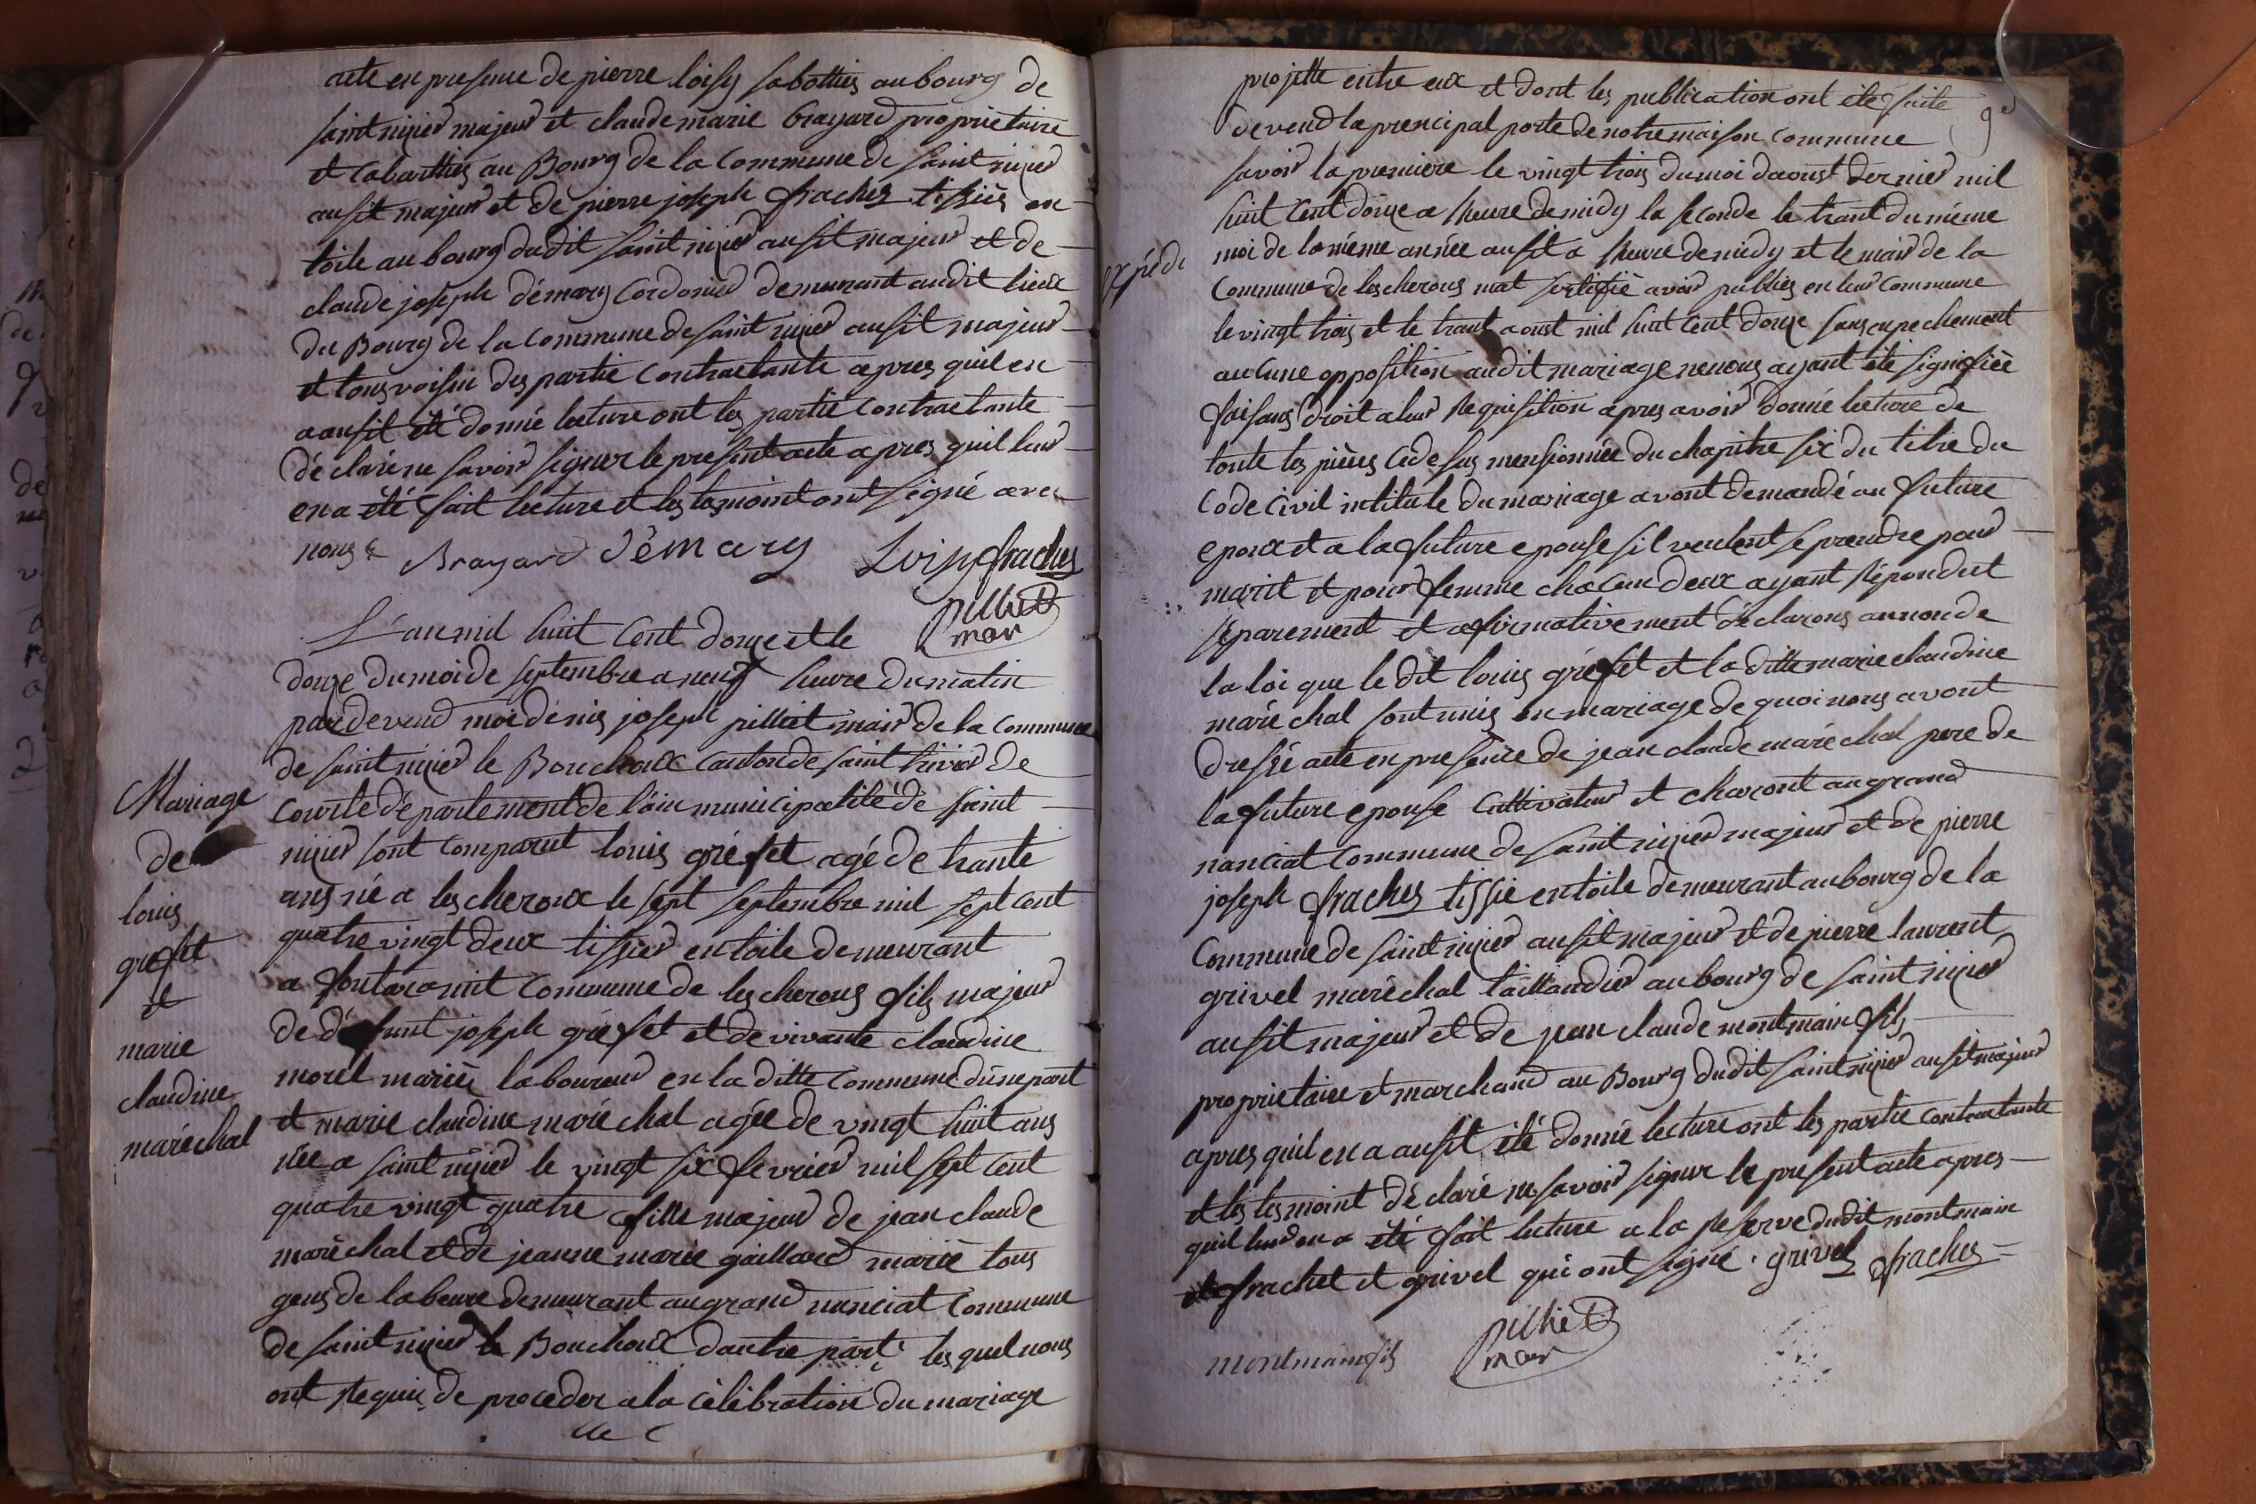 acte en presence de pierre loisy sabottier au bourg de
saint nizier majeur et claude marie brayard proprietaire
et cabarttier au Bourg de la commune de saint nizier
ausit majeur et de pierre joseph frachet tissier en
toile au bourg dudit saint nizier ausit majeur et de
claude joseph démary cordonier demeurant audit lieux
du Bourg de la commune de saint nizier ausit majeur
et tous voisin des partie contractante apres quil en
a ausit été donné lecture ont les partie contractante
déclaré ne savoir signer le present acte apres quil leur
en a été fait lecture et les temoint ont signé avec
nous
Brayard Démary Loisy frachet
pilliet
mair
L'an mil huit cent douze et le
douze du moi de septembre a neuf heure du matin
par devend moi dénis joseph pilliet mair de la commune
de saint nizier le Bouchoux canton de saint trivier de
courte département de l'ain municipalité de saint
nizier sont comparut louis gréfet agé de trante
ans né a lescheroux le sept septembre mil sept cent
quatre vingt deux tissier en toile demeurant
a commune de lescherous fils majeur
de défunt joseph gréfet et de vivante claudine
morel mariés laboureur en la ditte commune d'une part
et marie claudine maréchal agée de vingt huit ans
née a saint nizier le vingt six fevrier mil sept cent
quatre vingt quatre fille majeur de jean claude
maréchal et de jeanne marie gaillard marié tous
gens de labeure demeurant au grand nanciat commune
de saint nizier le Bouchoux dautre part les quel nous
ont requis de proceder a la célébration du mariage
Mariage
de
louis
grefet
et
marie
claudine
maréchal
projetté entre eux et dont les publication ont été faite
devend la prencipal porte de notre maison commune
savoir la premiere le vingt trois du moi daoust dernier mil
huit cent douze a heure de midy la seconde le trant du méme
moi de la méme année ausit a heure de midy et le mair de la
commune de lescherous mat sertifié avoir publies en leur commune
le vingt trois et le trant aoust mil huit cent douze sans enpechement
aucune opposition audit mariage ne nous ayant été signifiée
faisans droit a leur requisition apres avoir donné lecture de
toute les pièces cidesus mensionnée du chapitre six du titre du
code civil intitule du mariage avont demandé au future
epoux et a la future epouse sil veulent se prendre pour
marit et pour femme chacun deux ayant répondut
séparement et afirmativement déclarons au non de
la loi que le dit louis gréfet et la ditte marie claudine
maréchal sont unis en mariage de quoi nous avont
dressé acte en presence de jean claude maréchal pere de
la future epouse cultivateur et charont au grand
nanciat commune de saint nizier majeur et de pierre
joseph frachet tissié en toile demeurant au bourg de la
commune de saint nizier ausit majeur et de pierre laurent
grivel maréchal taillandier au bourg de saint nizier
ausit majeur et de jean claude montmain fils
proprietaire et marchand au Bourg dudit saint nizier ausit majeur
apres quil en a ausit été donné lecture ont les partie contractante
et les temoint déclaré ne savoir signer le present acte apres
quil leur en a été fait lecture a la reserve dudit montmain
et frachet et grivel qui ont signé . grivel frachet
montmain fils
pilliet
mair